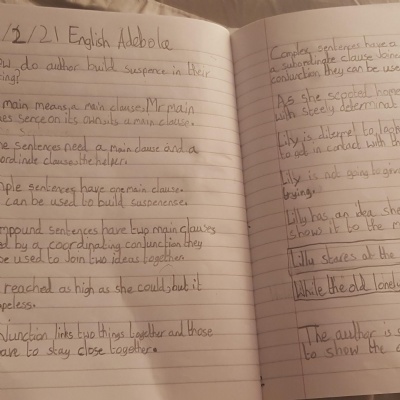 /2/21 English Adebola
ow do author build suspence in their
ting?
main means a main clause, Mr main
es sence on its own its a main clause.
e sentences need a main clause and a
ordinate clause, the helper.
ple sentences have one main clause.
can be used to build suspenense.
mpound sentences have two main clauses
ed by a coordinating conjunction they
be used to join two ideas together.
reached as high as she could, but it
peless.
njunction links two things together and those
ave to stay close together.
Complex sentences have a
a subordinate clause joine
conjunction they can be use
As she scooted home
with steely determinat
Lily is
to get in contact with th
Lily is not going to give
trying.
Lilly has an idea she
show it to the m
Lilly stares at the
While the old lonely
The author is s
to show the c